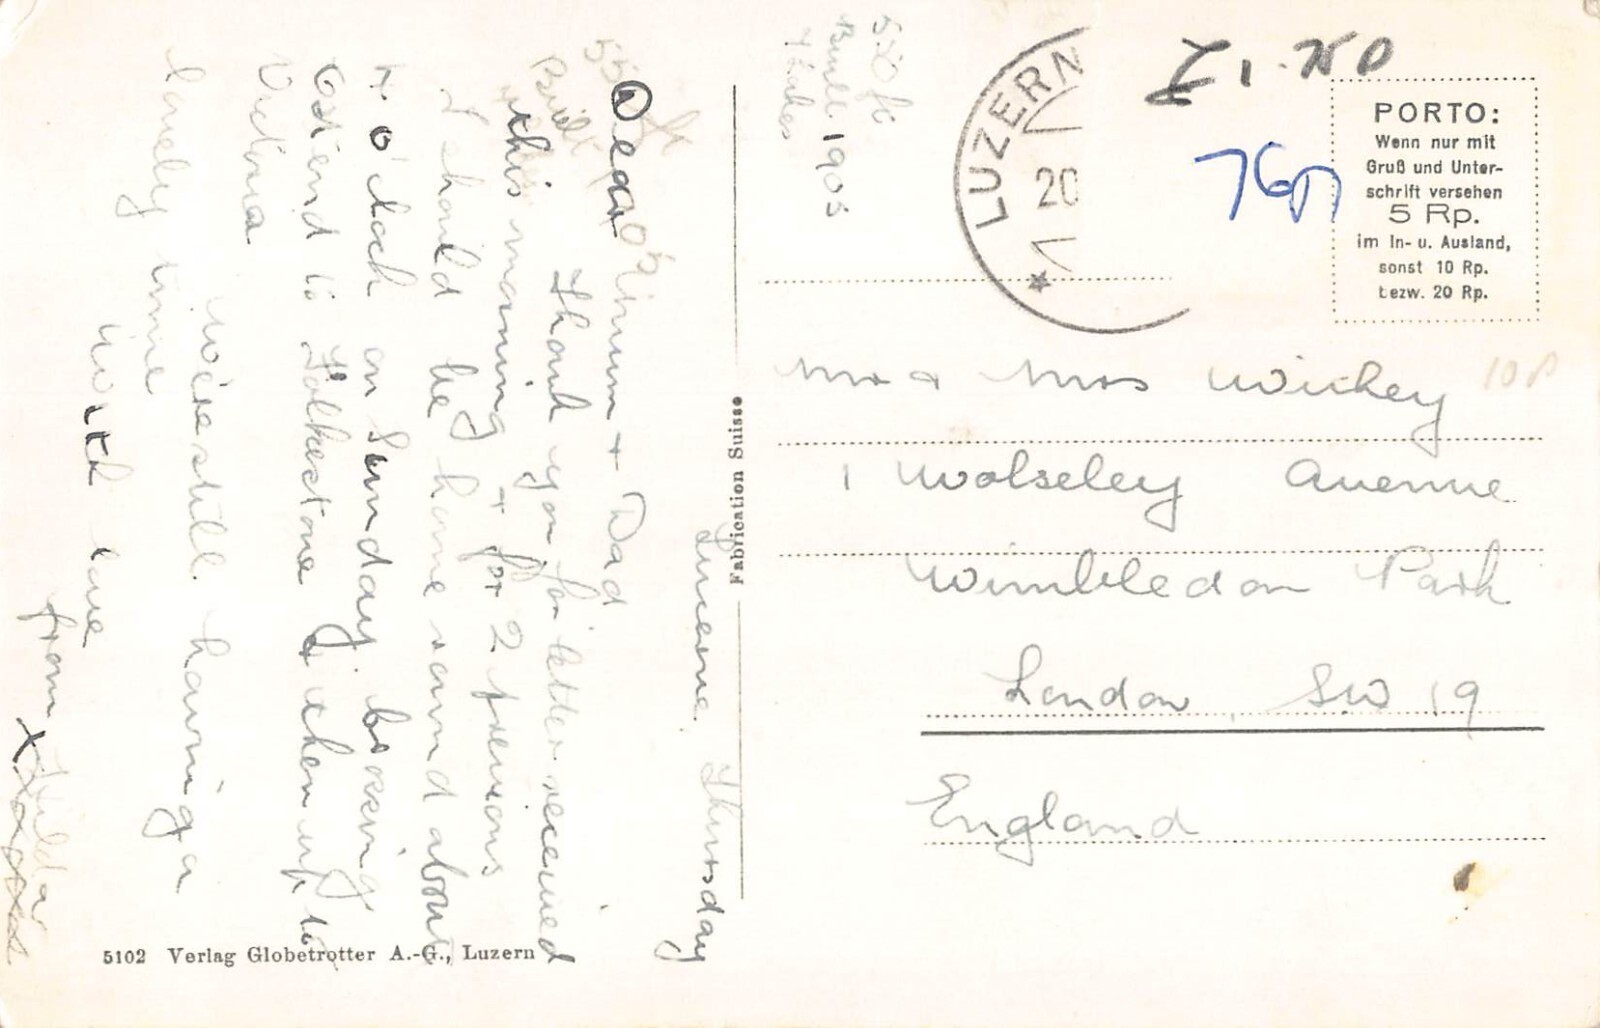 Lucerne, Thursday
Dear Mum + Dad
Thank you for letter received
this morning + for 2 previous
I should be home round about
4 o'clock on Sunday. Crossing
Ostend to Folkestone & then up to
Victoria
We're still having a
lovely time
With love
from Hilda
5102 Verlag Globetrotter A.-G., Luzern
Fabrication Suisse
Built 1905
LUZERN
20
£1.
76p
PORTO:
Wenn nur mit
Gruß und Unter-
schrift versehen
5 Rp.
im In- u. Ausland,
sonst 10 Rp.
bezw. 20 Rp.
10P
Mr & Mrs
1 Wolseley Avenue
Wimbledon Park
London, SW 19
England